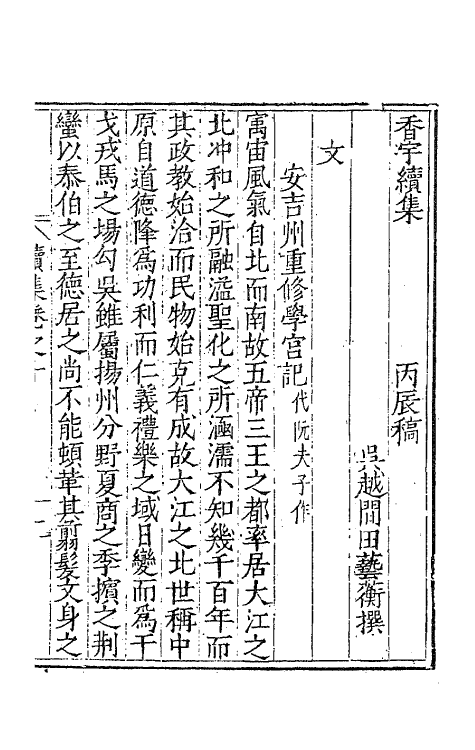 香宇續集　　　丙辰稿
吳越間田藝衡撰
文
安吉州重修學宮記代阮夫子作
寓宙風氣自北而南故五帝三王之都率居大江之
北冲和之所融溢聖化之所涵濡不知幾千百年而
其政教始洽而民物始克有成故大江之北世稱中
原自道德隆爲功利而仁義禮樂之域日變而爲干
戈戎馬之場勾吳雖屬揚州分野夏商之季擯之荆
蠻以泰伯之至德居之尚不能頓革其翦髮文身之
續集卷之十